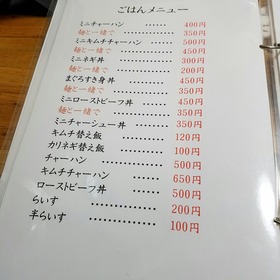 ごはんメニュー
ミニチャーハン ・・・・・・ 400円
麺と一緒で ・・・・・・・ 350円
ミニキムチチャーハン ・・・・・・ 500円
麺と一緒で ・・・・・・・ 450円
ミニネギ丼 ・・・・・・・・ 300円
麺と一緒で ・・・・・・・ 200円
まぐろすき身丼 ・・・・・・ 450円
麺と一緒で ・・・・・・・ 350円
ミニローストビーフ丼 ・・・・・・ 450円
麺と一緒で ・・・・・・・ 350円
ミニチャーシュー丼 ・・・・・・ 350円
キムチ替え飯 ・・・・・・・ 120円
カリネギ替え飯 ・・・・・・ 100円
チャーハン ・・・・・・・・ 500円
キムチチャーハン ・・・・・・ 650円
ローストビーフ丼 ・・・・・・ 500円
らいす ・・・・・・・・・・ 200円
半らいす ・・・・・・・・・ 100円